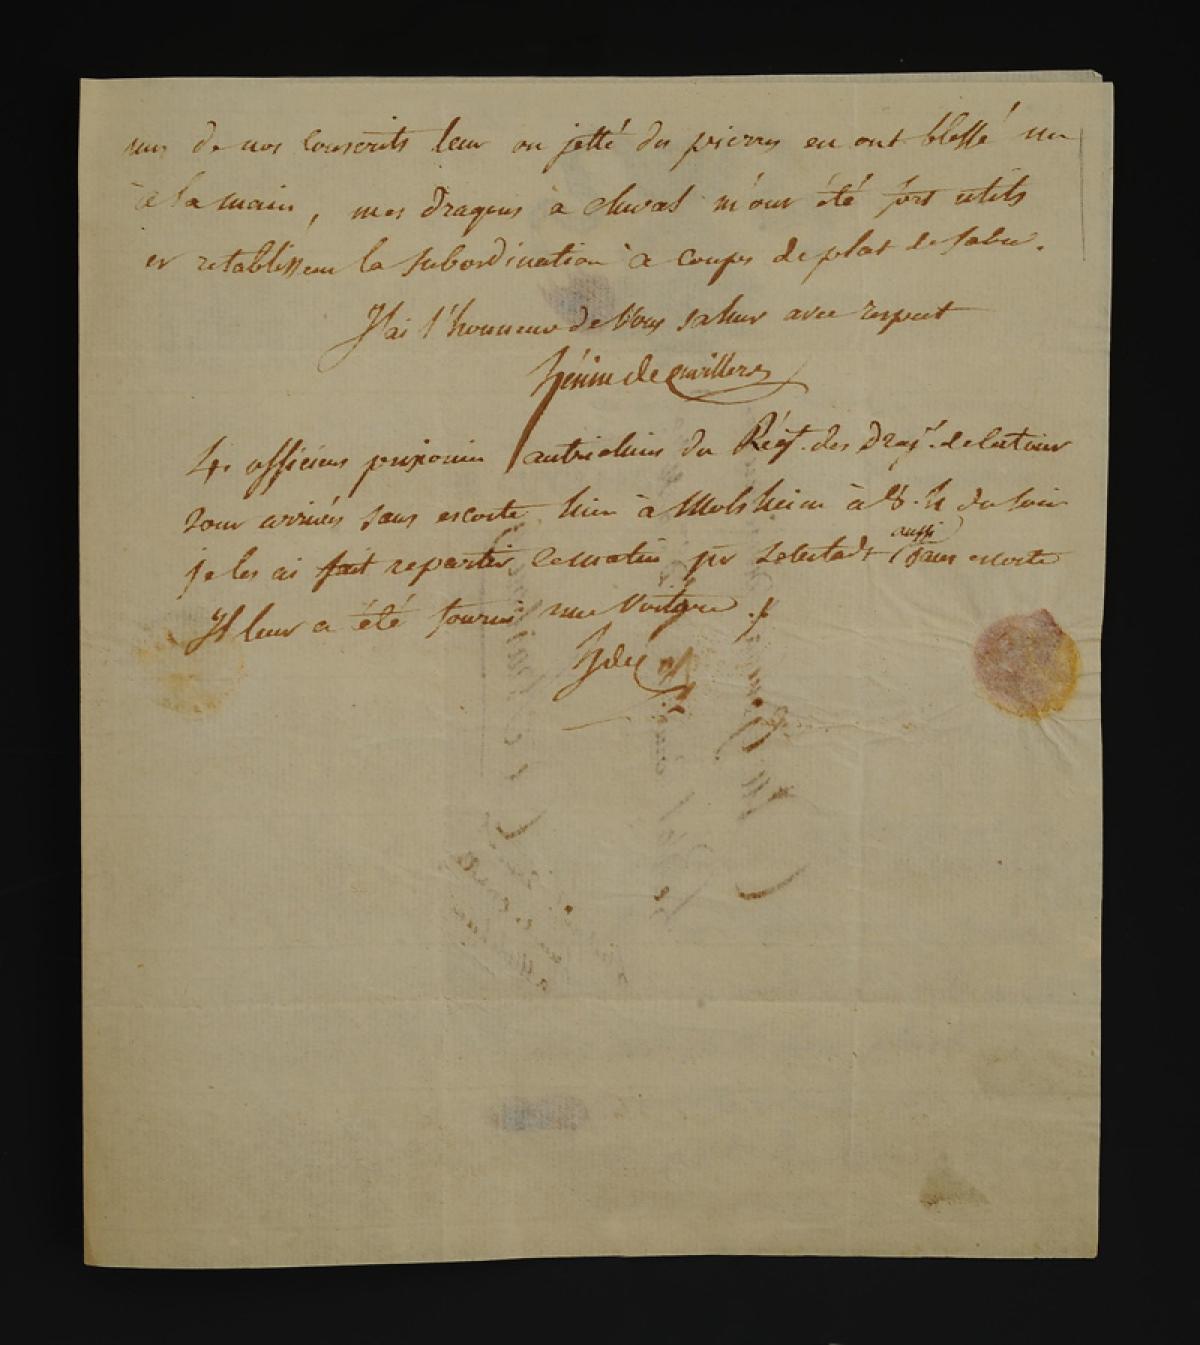 uns de nos conscrits leur on jetté des pierres en ont blessé un
à la main, mes dragons à cheval m'ont été fort utils
et retablissent la subordination à coups de plat de sabre.
J'ai l'honneur de Vous saluer avec respect
hénin de Cuvillers
4. officiers prisonier autrichiens du Régt. des Dragns. de latour
sont arrivés sans escorte hier à Molsheim à 8. h du soir
je les ai fait repartir ce matin pr Selestadt aussi sans escorte
Il leur a été fourni une Voiture ./.
hdeC